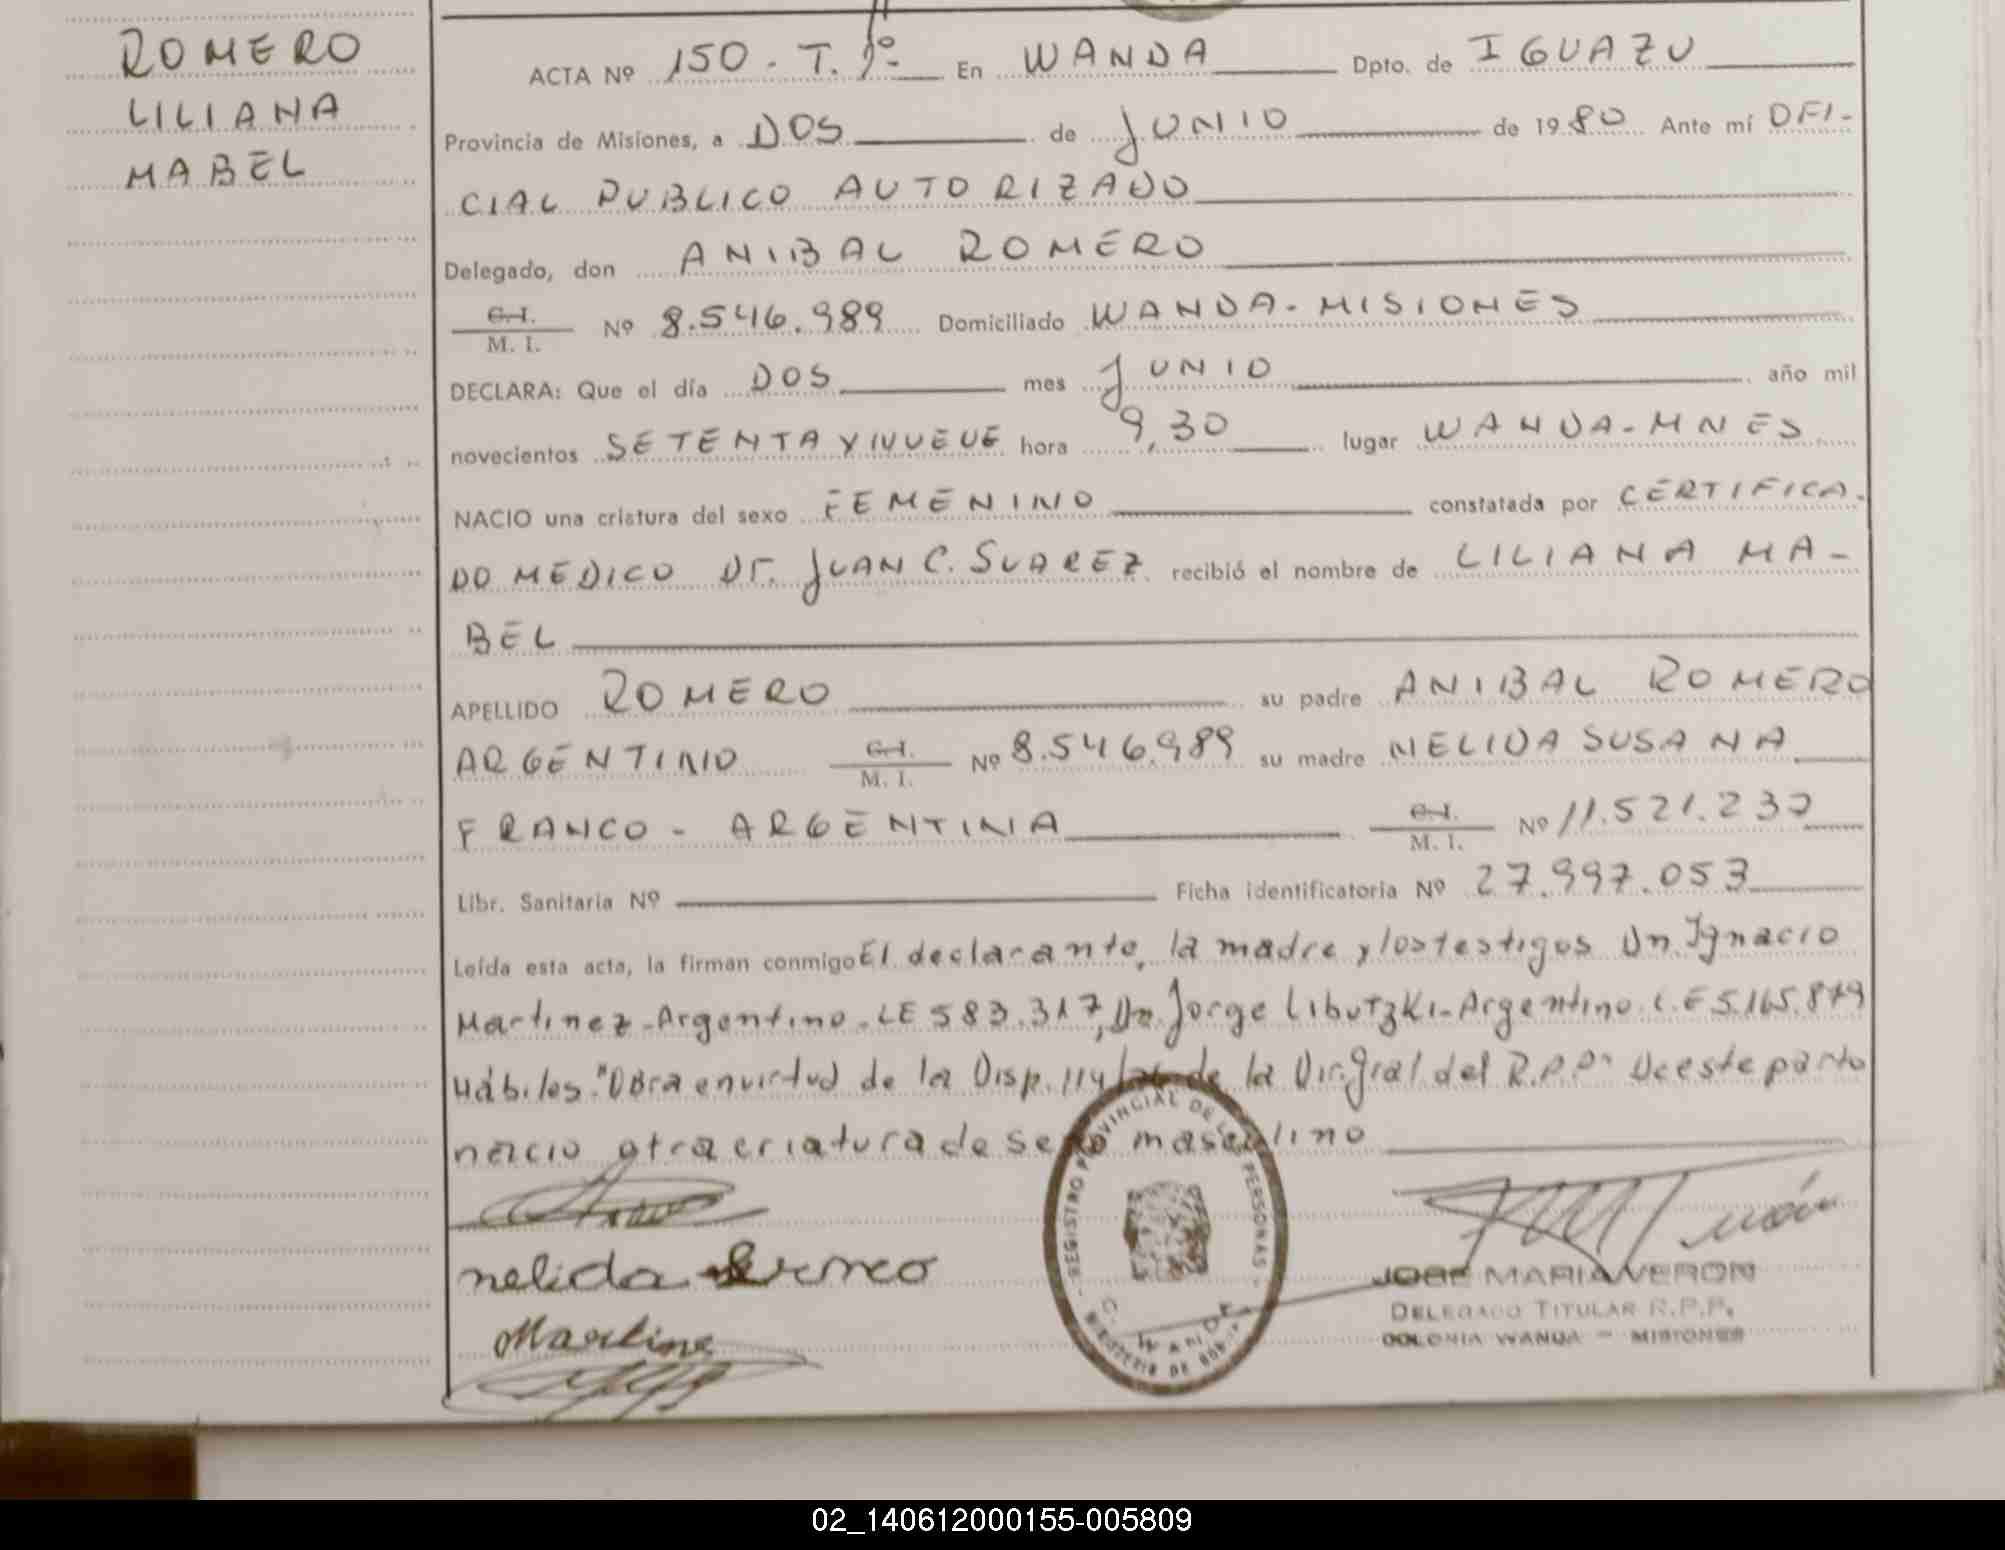 ROMERO
LILIANA
MABEL
ACTA Nº 150 - T. 1º- En WANDA Dpto. de IGUAZU
Provincia de Misiones, a DOS de JUNIO de 1980 Ante mí OFI-
CIAL PUBLICO AUTORIZADO
Delegado, don ANIBAL ROMERO
C.I. / M. I. Nº 8.546.989 Domiciliado WANDA-MISIONES
DECLARA: Que el día DOS mes JUNIO año mil
novecientos SETENTA Y NUEVE hora 9,30 lugar WANDA-MNES
NACIO una criatura del sexo FEMENINO constatada por CERTIFICA-
DO MEDICO Dr. JUAN C. SUAREZ recibió el nombre de LILIANA MA-
BEL
APELLIDO ROMERO su padre ANIBAL ROMERO
ARGENTINO C.I. / M. I. Nº 8.546.989 su madre NELIDA SUSANA
FRANCO - ARGENTINA C.I. / M. I. Nº 11.521.230
Libr. Sanitaria Nº Ficha identificatoria Nº 27.997.053
Leída esta acta, la firman conmigo El declarante, la madre y los testigos Dn. Ignacio
Martinez-Argentino-LE 583.317, Dn. Jorge Libutzki-Argentino. L.E 5.165.879
Hábiles."Obra en virtud de la Disp. 114/ de la Dir. Gral. del R.P.P" De este parto
nacio otra criatura de sexo masculino
nelida Franco
Martine
REGISTRO PROVINCIAL DE LAS PERSONAS
JOSE MARIA VERON
DELEGADO TITULAR R.P.P.
COLONIA WANDA - MISIONES
02_140612000155-005809